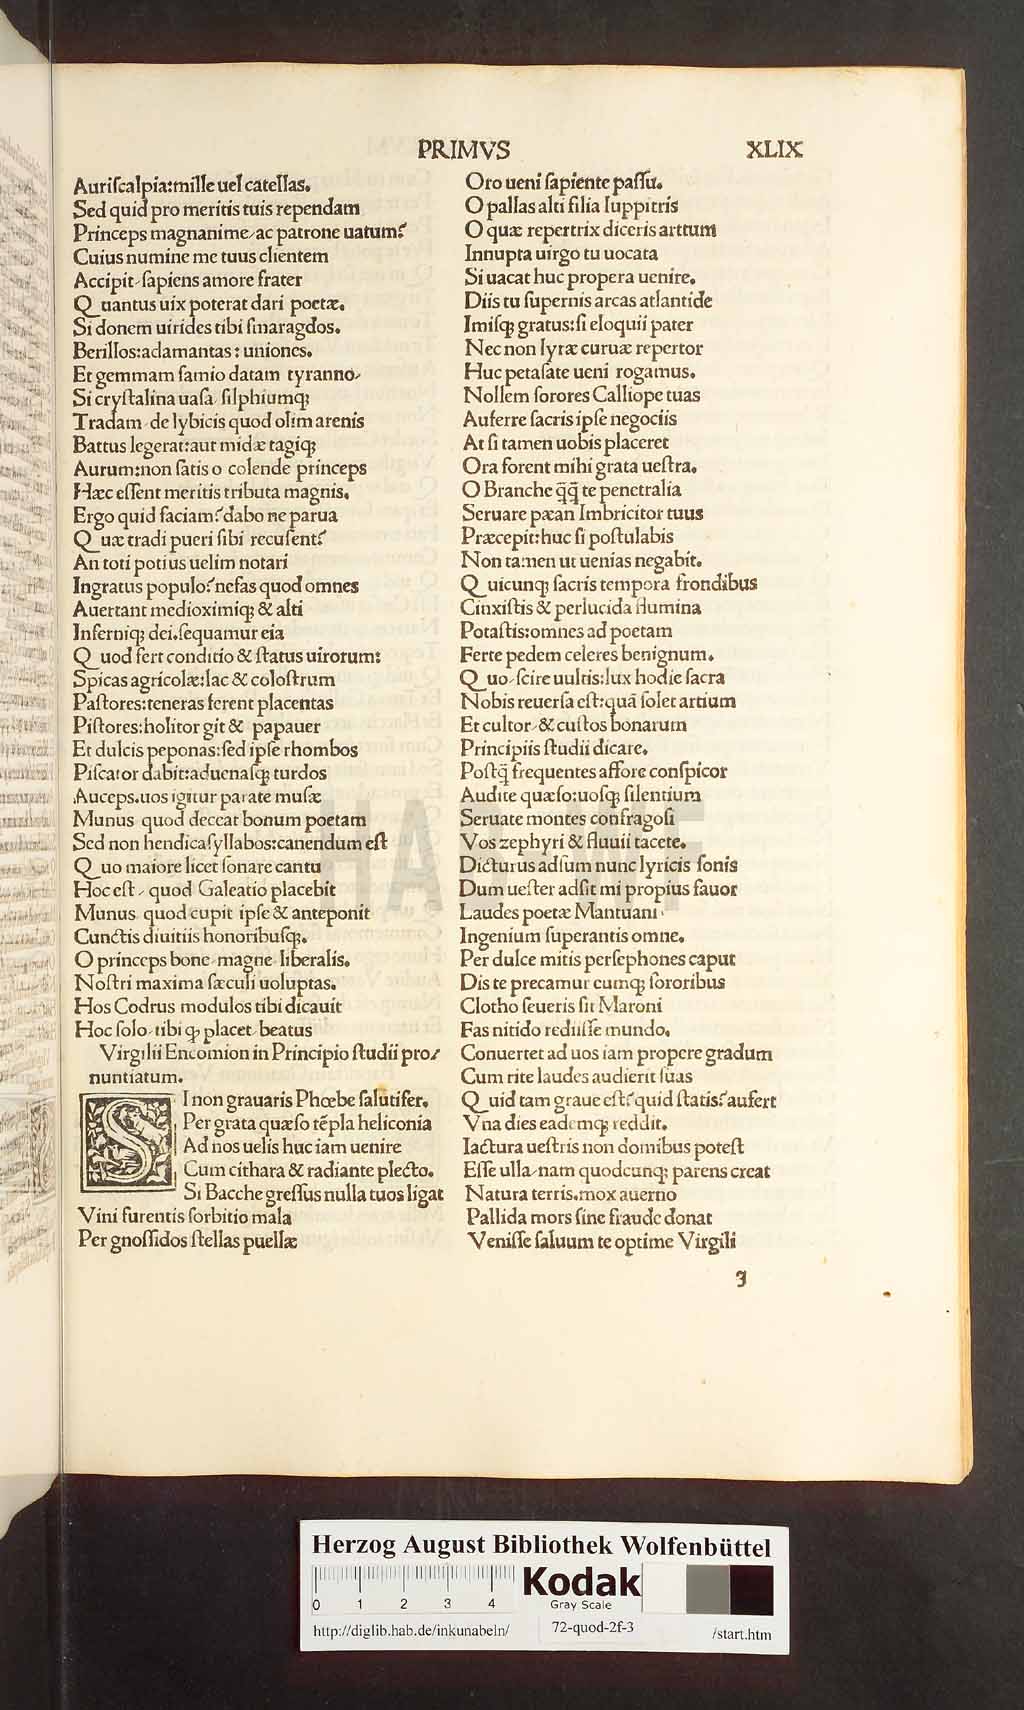 PRIMVS
XLIX
Auriſcalpia:mille uel catellas.
Sed quid pro meritis tuis rependam
Princeps magnanime/ac patrone uatum?
Cuius numine me tuus clientem
Accipit/ſapiens amore frater
Quantus uix poterat dari poetæ.
Si donem uirides tibi ſmaragdos.
Berillos:adamantas: uniones.
Et gemmam ſamio datam tyranno/
Si cryſtalina uaſa/ſilphiumqꝫ
Tradam/de lybicis quod olim arenis
Battus legerat:aut midæ tagiqꝫ
Aurum:non ſatis o colende princeps
Hæc eſſent meritis tributa magnis.
Ergo quid faciam?dabo ne parua
Quæ tradi pueri ſibi recuſent?
An toti potius uelim notari
Ingratus populo?nefas quod omnes
Auertant medioximiqꝫ & alti
Inferniqꝫ dei.ſequamur eia
Quod fert conditio & ſtatus uirorum:
Spicas agricolæ:lac & coloſtrum
Paſtores:teneras ferent placentas
Piſtores:holitor git & papauer
Et dulcis peponas:ſed ipſe rhombos
Piſcator dabit:aduenaſqꝫ turdos
Auceps.uos igitur parate muſæ
Munus quod deceat bonum poetam
Sed non hendicaſyllabos:canendum eſt
Quo maiore licet ſonare cantu
Hoc eſt/ quod Galeatio placebit
Munus quod cupit ipſe & anteponit
Cunctis diuitiis honoribuſqꝫ.
O princeps bone/magne/liberalis.
Noſtri maxima ſæculi uoluptas.
Hos Codrus modulos tibi dicauit
Hoc ſolo/tibi qꝫ placet/beatus
Virgilii Encomion in Principio ſtudii pro/
nuntiatum.
SI non grauaris Phœbe ſalutifer.
Per grata quæſo tēpla heliconia
Ad nos uelis huc iam uenire
Cum cithara & radiante plecto.
Si Bacche greſſus nulla tuos ligat
Vini furentis ſorbitio mala
Per gnoſſidos ſtellas puellæ
Oro ueni ſapiente paſſu.
O pallas alti filia Iuppitris
O quæ repertrix diceris arttum
Innupta uirgo tu uocata
Si uacat huc propera uenire.
Diis tu ſupernis arcas atlantide
Imiſqꝫ gratus:ſi eloquii pater
Nec non lyræ curuæ repertor
Huc petaſate ueni rogamus.
Nollem ſorores Calliope tuas
Auferre ſacris ipſe negociis
At ſi tamen uobis placeret
Ora forent mihi grata ueſtra.
O Branche q̄q̄ te penetralia
Seruare pæan Imbricitor tuus
Præcepit:huc ſi poſtulabis
Non tamen ut uenias negabit.
Quicunqꝫ ſacris tempora frondibus
Cinxiſtis & perlucida flumina
Potaſtis:omnes ad poetam
Ferte pedem celeres benignum.
Quo/ſcire uultis:lux hodie ſacra
Nobis reuerſa eſt:quā ſolet artium
Et cultor/& cuſtos bonarum
Principiis ſtudii dicare.
Poſtq̄ frequentes affore conſpicor
Audite quæſo:uoſqꝫ ſilentium
Seruate montes confragoſi
Vos zephyri & fluuii tacete.
Dicturus adſum nunc lyricis ſonis
Dum ueſter adſit mi propius fauor
Laudes poetæ Mantuani
Ingenium ſuperantis omne.
Per dulce mitis perſephones caput
Dis te precamur cumqꝫ ſororibus
Clotho ſeueris ſit Maroni
Fas nitido rediiſſe mundo.
Conuertet ad uos iam propere gradum
Cum rite laudes audierit ſuas
Quid tam graue eſt?quid ſtatis?aufert
Vna dies eademqꝫ reddit.
Iactura ueſtris non domibus poteſt
Eſſe ulla/nam quodcunqꝫ parens creat
Natura terris.mox auerno
Pallida mors ſine fraude donat
Veniſſe ſaluum te optime Virgili
HAB WF
Herzog August Bibliothek Wolfenbüttel
0 1 2 3 4
Kodak
Gray Scale
http://diglib.hab.de/inkunabeln/
72-quod-2f-3
/start.htm